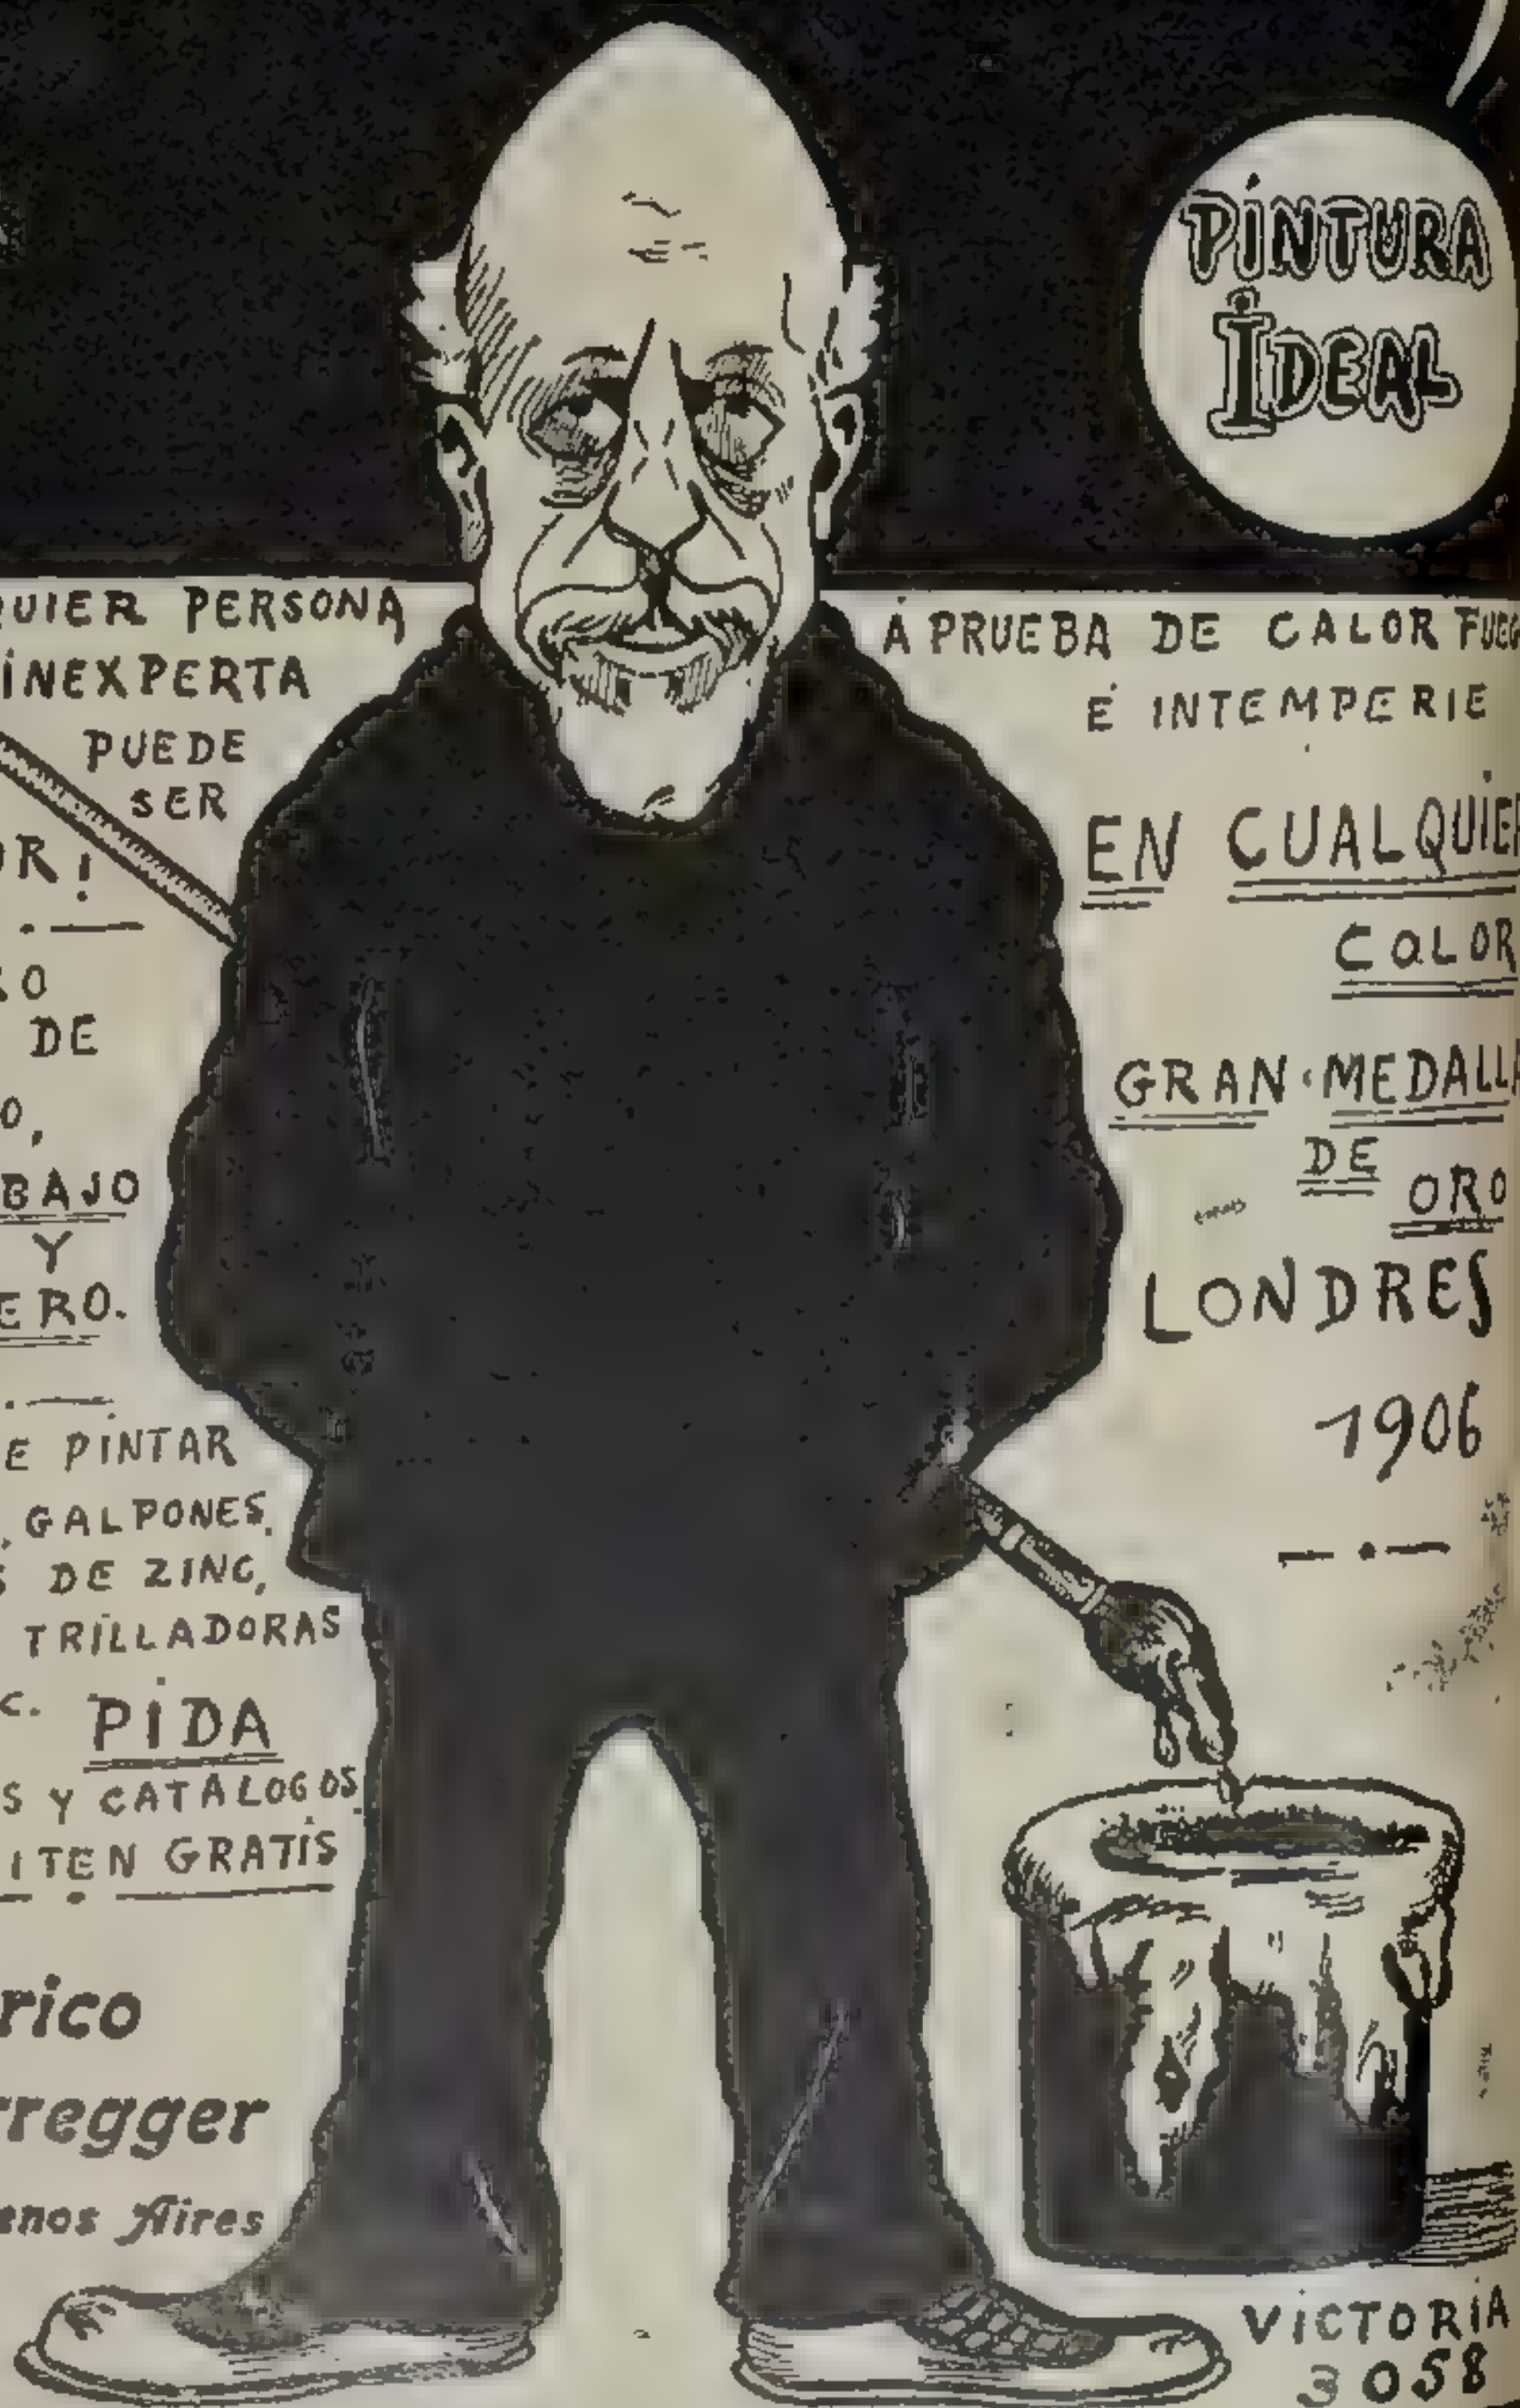 PINTURA
IDEAL
PERSONA
INEXPERTA
PUEDE
SER
DE
Y
PINTAR
GALPONES.
DE ZINC,
TRILLADORAS
PIDA
Y CATALOGOS.
GRATIS
Aires
Á PRUEBA DE CALOR
É INTEMPERIE
EN CUALQUIER
COLOR
GRAN MEDALLA
DE
ORO
LONDRES
1906
VICTORIA
3058